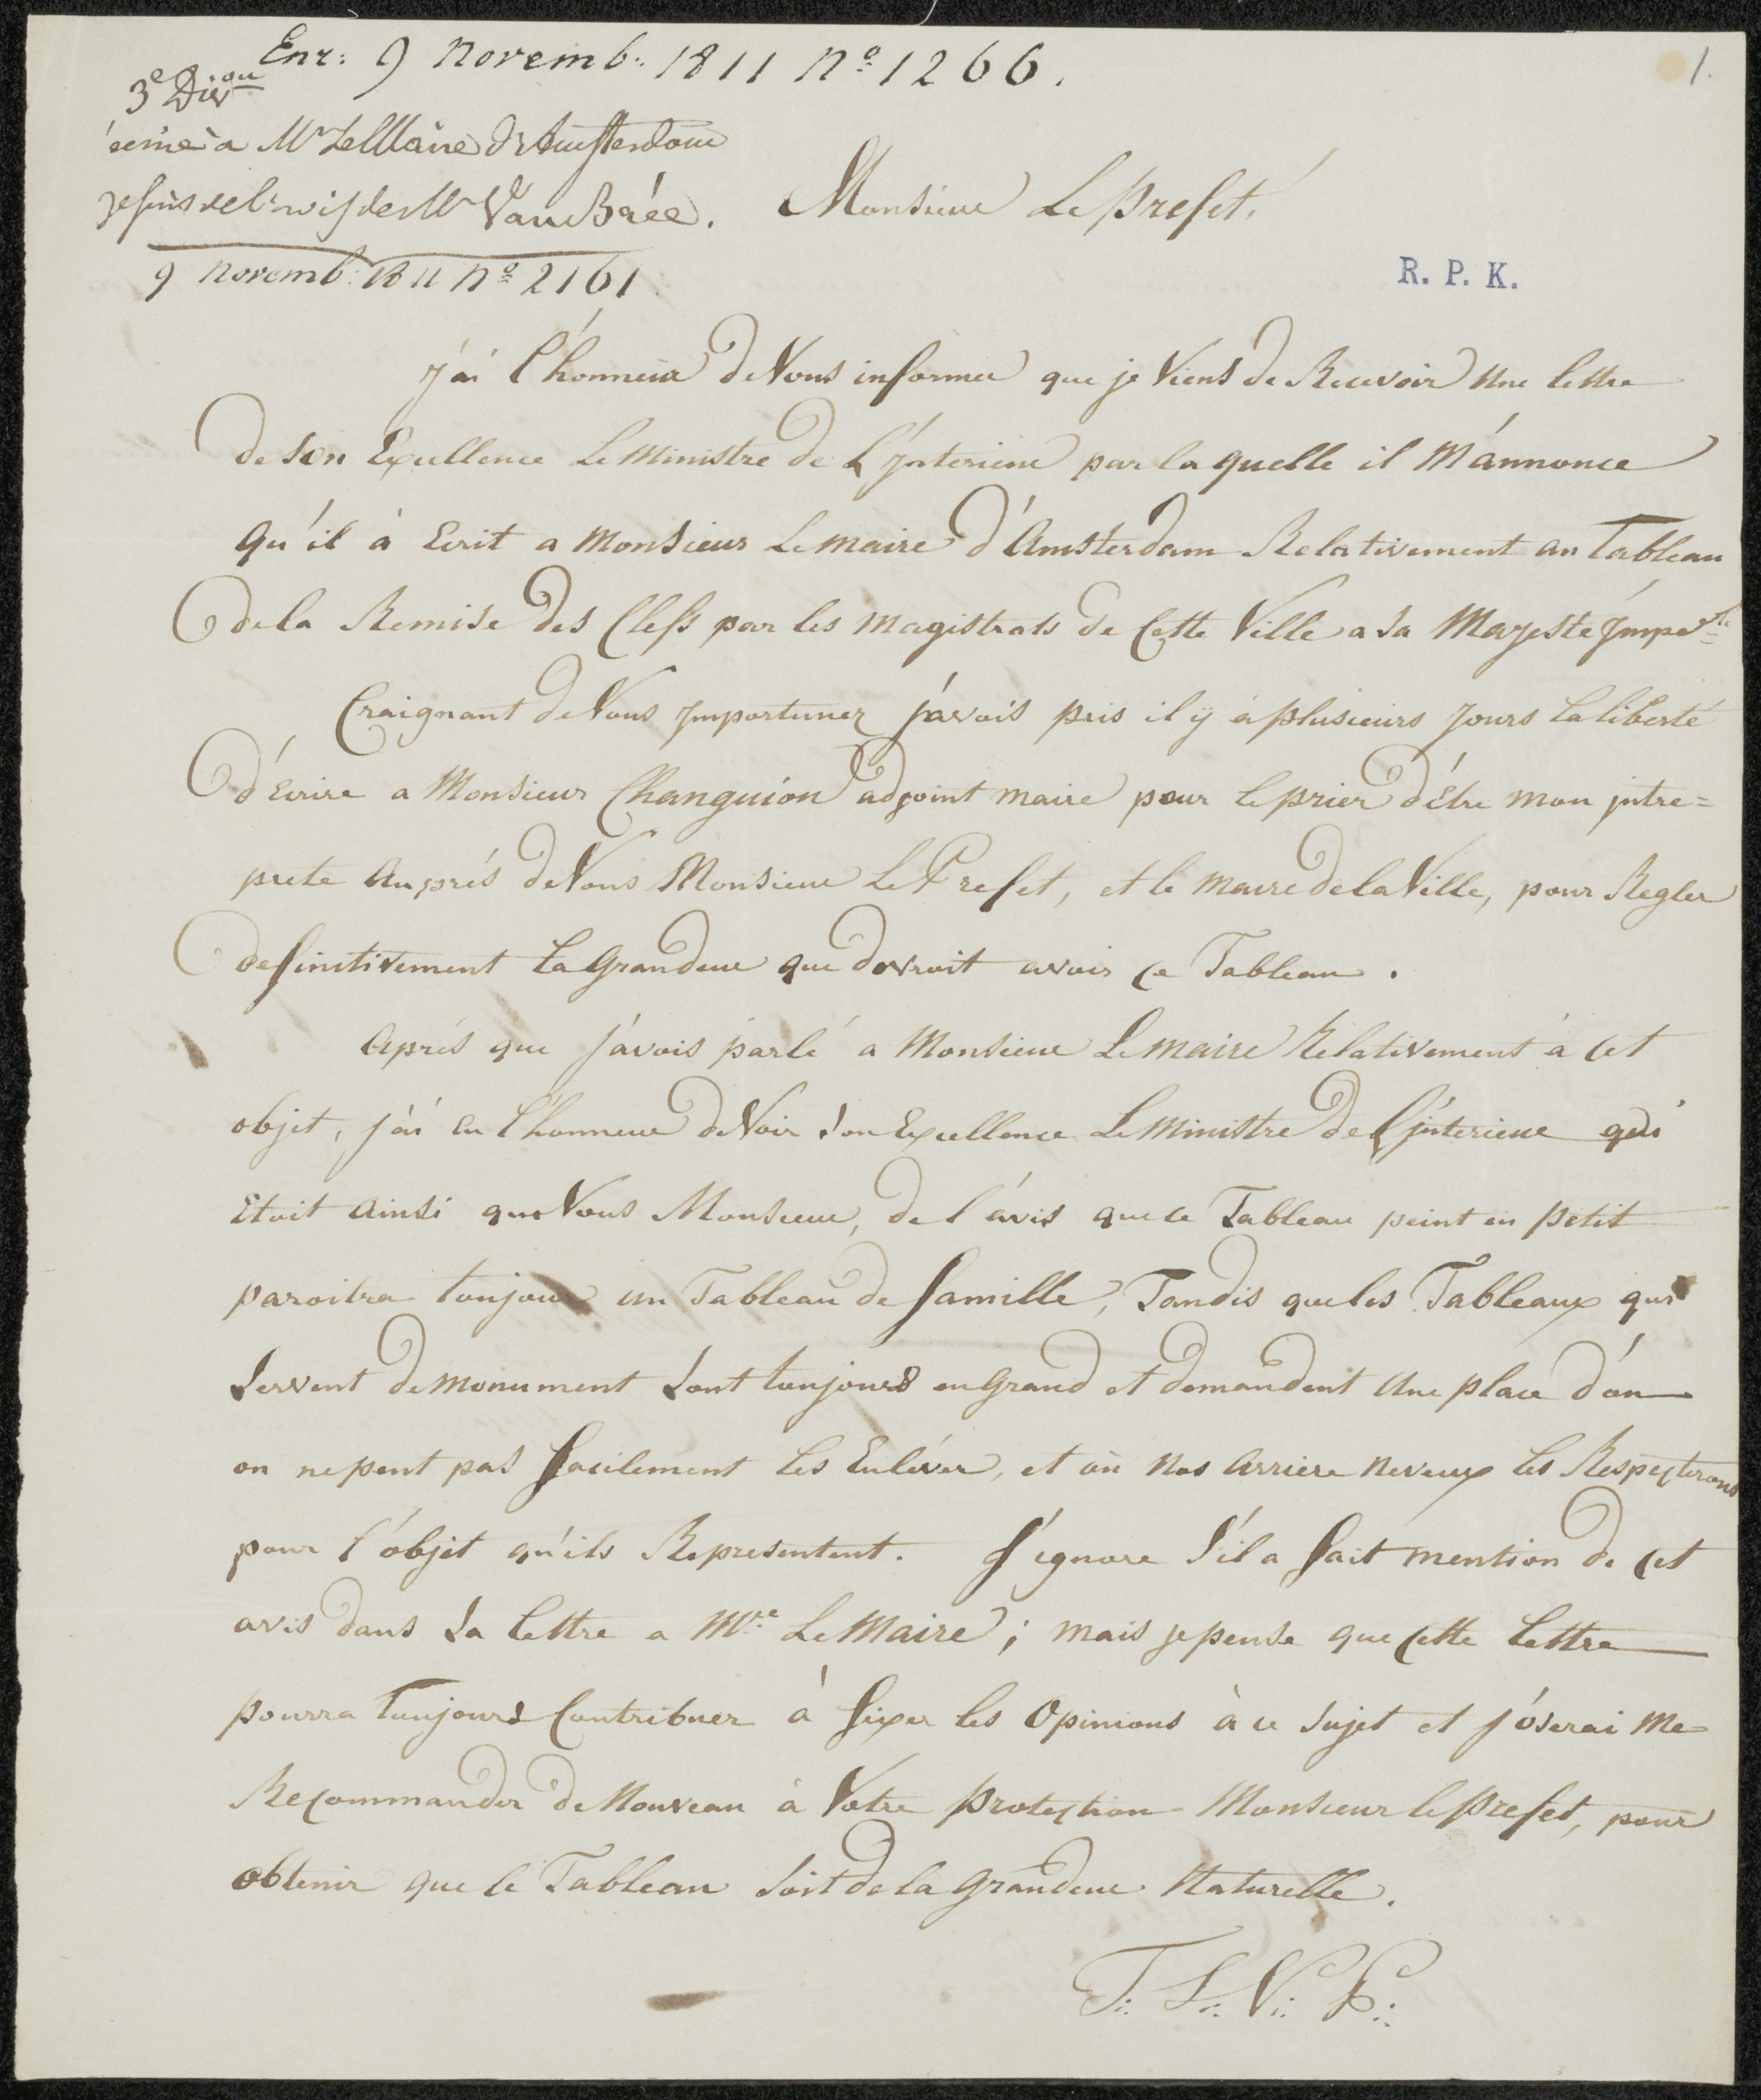 Enr: 9 Novemb: 1811 Nº 1266.
1.
3e Divon
à Mr Le Maire d'Amsterdam
je suis de l'avis de Mr Van Brée.
9 Novemb: 1811 Nº 2161.
Monsieur Le Prefet,
R. P. K.
J'ai l'honneur de Vous informer que je Viens de Recevoir Une lettre
de Son Excellence Le Ministre de L'Jnterieur par laquelle il M'annonce
Qu'il à Ecrit a Monsieur Le maire d'Amsterdam Relativement au Tableau
de la Remise des Clefs par les Magistrats de Cette Ville a Sa Majesté Jmperle
Craignant de Vous Jmportuner j'avois pris il ÿ à plusieurs Jours la liberté
d'Ecrire a Monsieur Changuion adjoint maire pour le prier d'être mon jntre=
prete Auprés de Vous Monsieur Le Prefet, et le Maire de la Ville, pour Regler
definitivement la Grandeur que devroit avoir ce Tableau.
Aprés que J'avois parlé a Monsieur Le Maire Relativement à cet
objet, j'ai eu l'honneur de Voir Son Excellence Le Ministre de l'jnterieur qui
Etoit Ainsi que Vous Monsieur, de l'avis que ce Tableau peint en petit
paroitra toujours un Tableau de famille, Tandis que les Tableaux qui
Servent de monument Sont toujours en Grand et demandent Une place d'ou
on ne peut pas facilement les Enléver, et où Nos Arriere Neveux les Respecterons
pour l'objet qu'ils Representent. J'ignore S'il a fait mention de cet
avis dans Sa lettre a Mr Le Maire; mais je pense que cette lettre
pourra Toujours Contribuer à fixer les Opinions à ce Sujet et j'oserai Me
Recommander de Nouveau à Votre Protection Monsieur le Prefet, pour
obtenir que le Tableau Soit de la Grandeur Naturelle.
T: S: V: P: